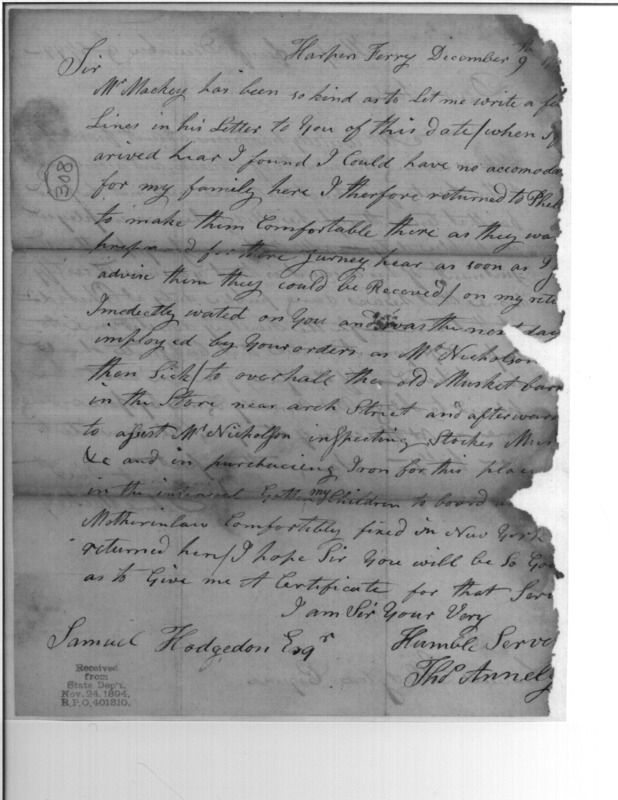 Harpers Ferry December 9th
Sir
Mr Mackey has been so kind as to Let me write a fe
Lines in his Letter to You of this date / when I
arived hear I found I Could have no accomoda
for my family here I therfore returned to Phil
to make them Comfortable there as they wa
for there jurney hear as soon as I
advise them they could be Receved / on my retu
Imedectly wated on You and was the next day
imployed by Your orders as Mr Nicholson
then Sick / to overhall the old Musket barr
in the Store near arch Street and afterwar
to assist Mr Nicholson inspecting Stockes Mus
&c and in purchacing Iron for this plac
in the interval Gotten my Children to board
Motherinlaw Comfortibly fixed in New York
returned here / I hope Sir You will be So Goo
as to Give me A Certificate for that Serv
I am Sir Your Very
Samuel Hodgedon Esqr
Humble Serva
Thos Annely
308
Received
from
State Dep't.
Nov. 24, 1894.
R.P.O. 401810.